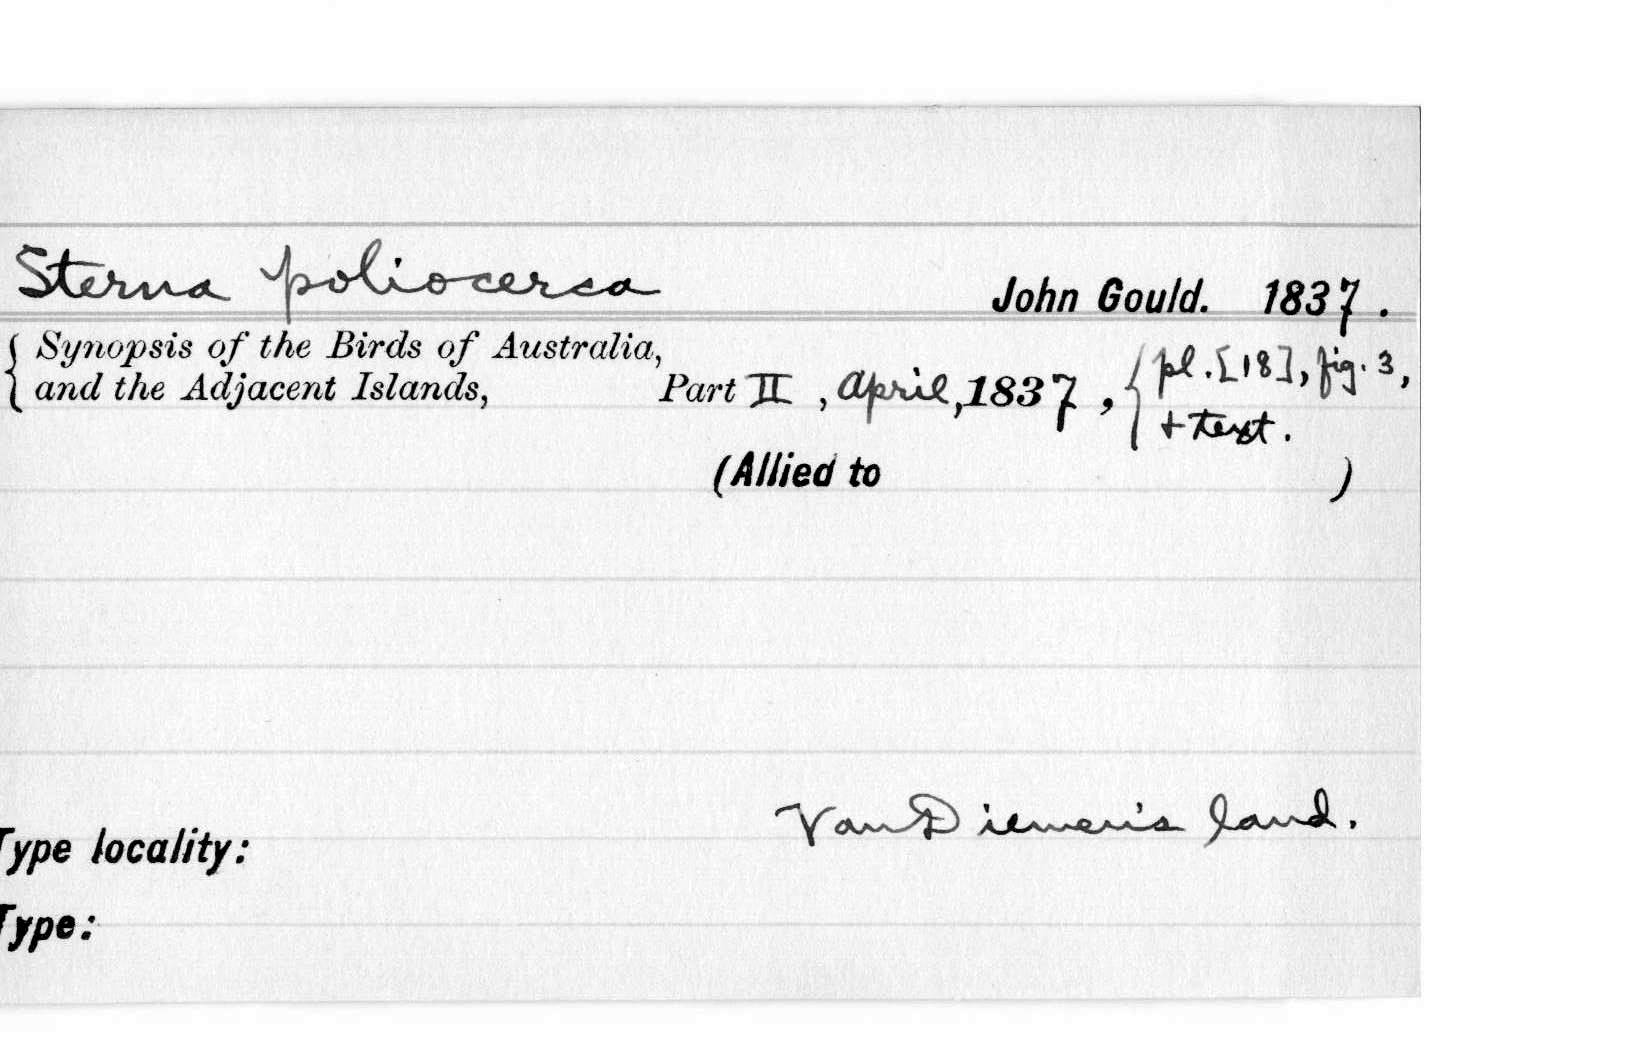 Sterna poliocerca John Gould. 1837.
{ Synopsis of the Birds of Australia,
and the Adjacent Islands, Part II, April, 1837, { pl. [18], fig. 3,
+ text.
(Allied to )
Van Diemen's land.
Type locality:
Type: